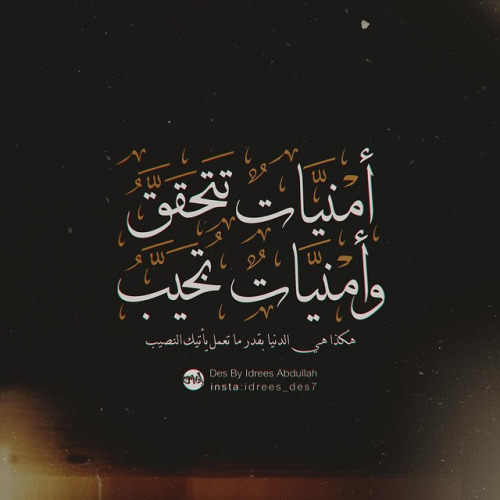 أمْنيَّاتٌ تَتَحَقَّقُ
وأمْنيَّاتٌ تُخَيَّبُ
هكذا هي الدنيا بقدر ما تعمل يأتيك النصيب
Des By Idrees Abdullah
insta:idrees_des7